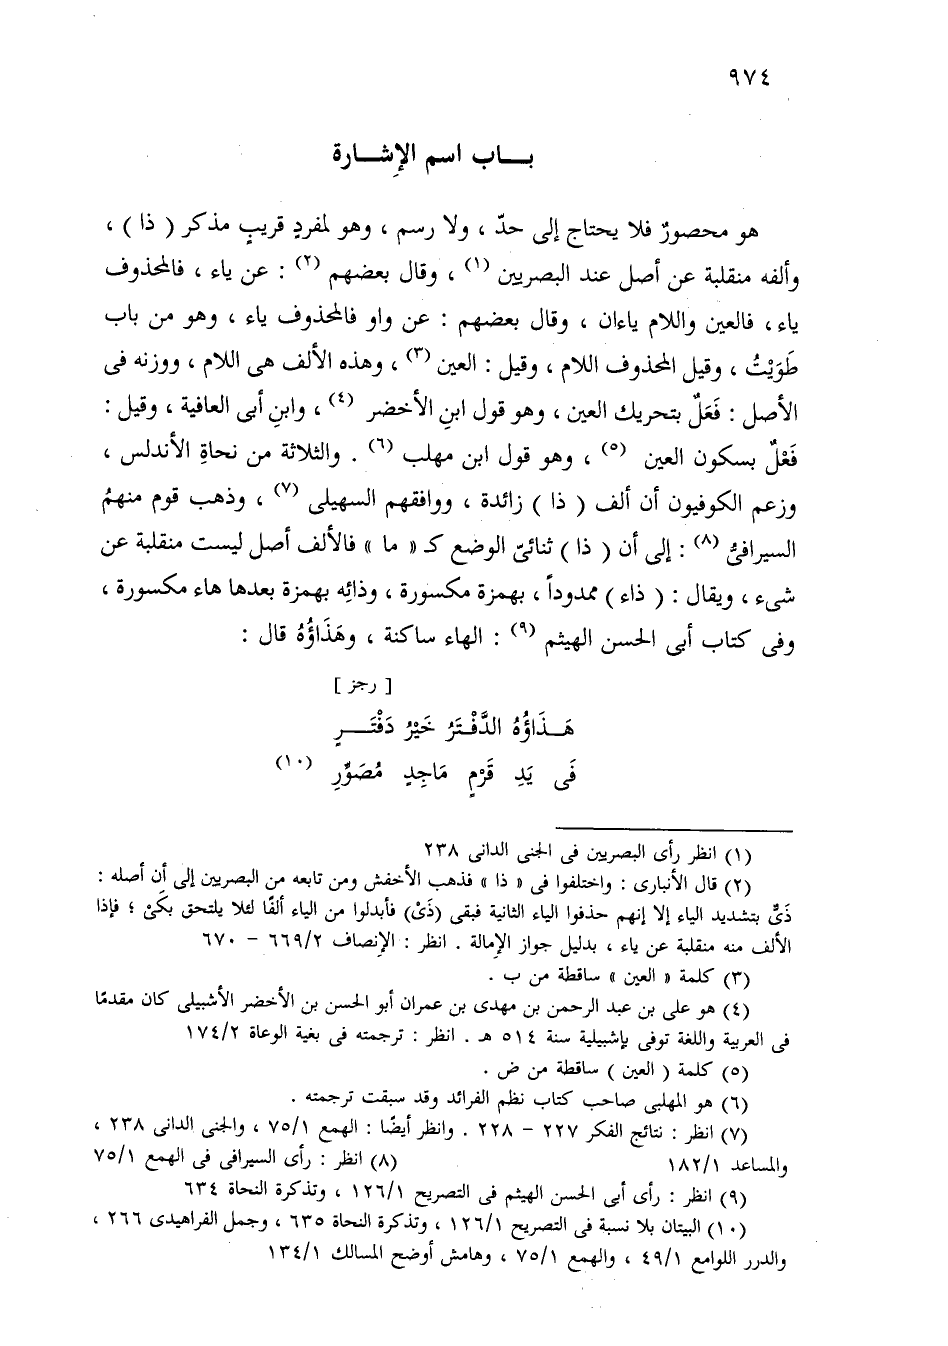 ٩٧٤
بـــاب اسم الإشـــارة
هو محصورٌ فلا يحتاج إلى حدّ ، ولا رسم ، وهو لمفردٍ قريبٍ مذكر ( ذا ) ،
وألفه منقلبة عن أصل عند البصريين (١) ، وقال بعضهم (٢) : عن ياء ، فالمحذوف
ياء ، فالعين واللام ياءان ، وقال بعضهم : عن واو فالمحذوف ياء ، وهو من باب
طَوَيْتُ ، وقيل المحذوف اللام ، وقيل : العين (٣) ، وهذه الألف هى اللام ، ووزنه فى
الأصل : فَعَلٌ بتحريك العين ، وهو قول ابنِ الأخضر (٤) ، وابنِ أبى العافية ، وقيل :
فَعْلٌ بسكون العين (٥) ، وهو قول ابن مهلب (٦) . والثلاثة من نحاةِ الأندلس ،
وزعم الكوفيون أن ألف ( ذا ) زائدة ، ووافقهم السهيلى (٧) ، وذهب قوم منهمُ
السيرافىُّ (٨) : إلى أن ( ذا ) ثنائىّ الوضع كـ « ما » فالألف أصل ليست منقلبة عن
شىء ، ويقال : ( ذاء ) ممدوداً ، بهمزة مكسورة ، وذائِه بهمزة بعدها هاء مكسورة ،
وفى كتاب أبى الحسن الهيثم (٩) : الهاء ساكنة ، وهَذَاؤُهُ قال :
[ رجز ]
هَــذَاؤُهُ الدَّفْـتَرُ خَيْرُ دَفْتَـــرٍ
فَى يَدِ قَرْمٍ مَاجِدٍ مُصَوِّرِ (١٠)
(١) انظر رأى البصريين فى الجنى الدانى ٢٣٨
(٢) قال الأنبارى : واختلفوا فى « ذا » فذهب الأخفش ومن تابعه من البصريين إلى أن أصله :
ذَىٌّ بتشديد الياء إلا إنهم حذفوا الياء الثانية فبقى (ذَىْ) فأبدلوا من الياء ألفًا لئلا يلتحق بكَىْ ؛ فإذا
الألف منه منقلبة عن ياء ، بدليل جواز الإمالة . انظر : الإنصاف ٦٦٩/٢ – ٦٧٠
(٣) كلمة « العين » ساقطة من ب .
(٤) هو على بن عبد الرحمن بن مهدى بن عمران أبو الحسن بن الأخضر الأشبيلى كان مقدمًا
فى العربية واللغة توفى بإشبيلية سنة ٥١٤ هـ . انظر : ترجمته فى بغية الوعاة ١٧٤/٢
(٥) كلمة ( العين ) ساقطة من ض .
(٦) هو المهلبى صاحب كتاب نظم الفرائد وقد سبقت ترجمته .
(٧) انظر : نتائج الفكر ٢٢٧ – ٢٢٨ . وانظر أيضًا : الهمع ٧٥/١ ، والجنى الدانى ٢٣٨ ،
والمساعد ١٨٢/١ (٨) انظر : رأى السيرافى فى الهمع ٧٥/١
(٩) انظر : رأى أبى الحسن الهيثم فى التصريح ١٢٦/١ ، وتذكرة النحاة ٦٣٤
(١٠) البيتان بلا نسبة فى التصريح ١٢٦/١ ، وتذكرة النحاة ٦٣٥ ، وجمل الفراهيدى ٢٦٦ ،
والدرر اللوامع ٤٩/١ ، والهمع ٧٥/١ ، وهامش أوضح المسالك ١٣٤/١